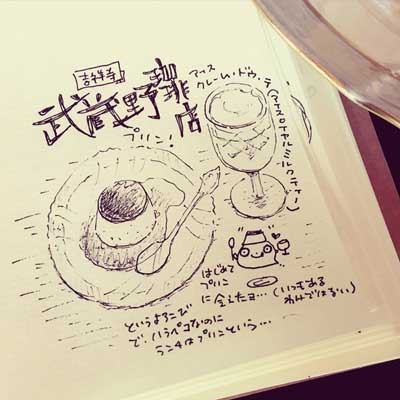 吉祥寺
武蔵野珈琲店
プリン!
アイス
クレーム・ドゥ・テ
(アイスロイヤルミルクティー)
はじめて
プリン
に会えたヨ…(いつもある
わけではない)
というよろこび
で、ハラペコなのに
ランチはプリンという…